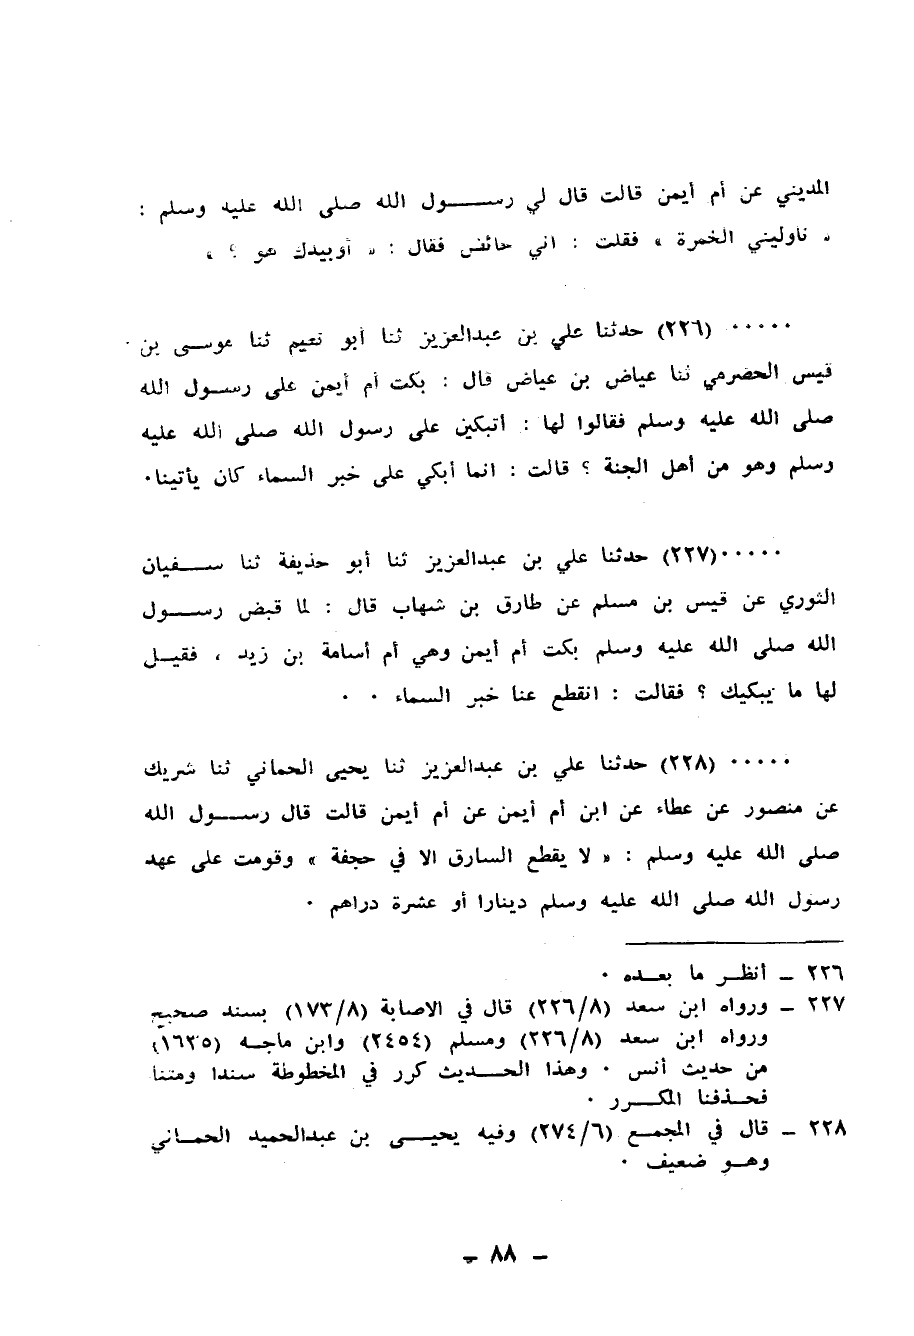 المديني عن أم أيمن قالت قال لي رســـول الله صلى الله عليه وسلم :
« ناوليني الخمرة » فقلت : اني حائض فقال : « أوبيدك هو ؟ »
٠٠٠٠٠ (٢٢٦) حدثنا علي بن عبدالعزيز ثنا أبو نعيم ثنا موسى بن
قيس الحضرمي ثنا عياض بن عياض قال : بكت أم أيمن على رســول الله
صلى الله عليه وسلم فقالوا لها : أتبكين على رسول الله صلى الله عليه
وسلم وهو من أهل الجنة ؟ قالت : انما أبكي على خبر السماء كان يأتينا٠
٠٠٠٠٠(٢٢٧) حدثنا علي بن عبدالعزيز ثنا أبو حذيفة ثنا ســفيان
الثوري عن قيس بن مسلم عن طارق بن شهاب قال : لما قبض رســول
الله صلى الله عليه وسلم بكت أم أيمن وهي أم أسامة بن زيد ، فقيــل
لها ما يبكيك ؟ فقالت : انقطع عنا خبر السماء ٠ ٠
٠٠٠٠٠ (٢٢٨) حدثنا علي بن عبدالعزيز ثنا يحيى الحماني ثنا شريك
عن منصور عن عطاء عن ابن أم أيمن عن أم أيمن قالت قال رســول الله
صلى الله عليه وسلم : « لا يقطع السارق الا في حجفة » وقومت على عهد
رسول الله صلى الله عليه وسلم دينارا أو عشرة دراهم ٠
٢٢٦ ـ أنظــر ما بعــده ٠
٢٢٧ ـ ورواه ابن سعد (٢٢٦/٨) قال في الاصابة (١٧٣/٨) بسند صحيح
ورواه ابن سعد (٢٢٦/٨) ومسلم (٢٤٥٤) وابن ماجــه (١٦٣٥)
من حديث أنس ٠ وهذا الحــديث كرر في المخطوطة سندا ومتنا
فحــذفنا المكــرر ٠
٢٢٨ ـ قال في المجمــع (٢٧٤/٦) وفيه يحيــى بن عبدالحميد الحمــاني
وهــو ضعيف ٠
ـ ٨٨ ـ